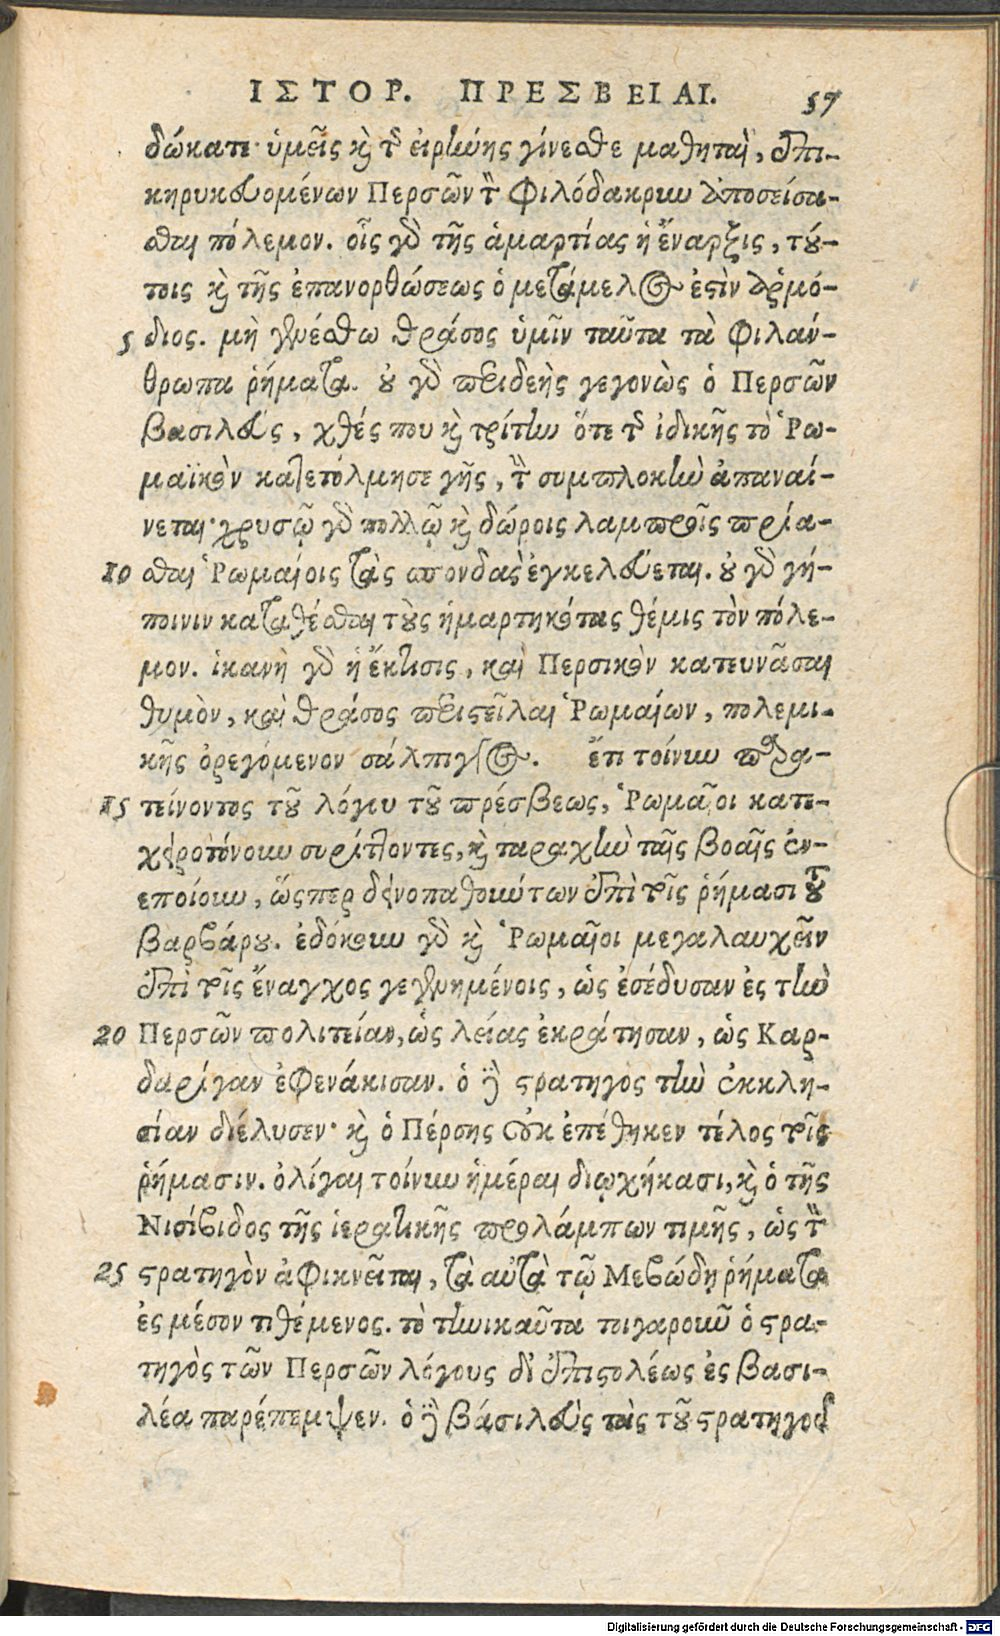 ΙΣΤΟΡ. ΠΡΕΣΒΕΙΑΙ. 57
δώκατε· ὑμεῖς καὶ τῆς εἰρήνης γίνεσθε μαθηταὶ, ἐπι-
κηρυκευομένων Περσῶν τὸν φιλόδακρυν ἀποσείσα-
σθαι πόλεμον. οἷς γὰρ τῆς ἁμαρτίας ἡ ἔναρξις, τού-
τοις καὶ τῆς ἐπανορθώσεως ὁ μετάμελος ἐστὶν ἁρμό-
5 διος. μὴ γενέσθω θράσος ὑμῖν ταῦτα τὰ φιλάν-
θρωπα ῥήματα. οὐ γὰρ περιδεὴς γεγονὼς ὁ Περσῶν
βασιλεὺς, χθές που καὶ τρίτην ὅτε τῆς ἰδικῆς τὸ Ῥω-
μαϊκὸν κατετόλμησε γῆς, τὴν συμπλοκὴν ἀπαναί-
νεται· χρυσῷ γὰρ πολλῷ καὶ δώροις λαμπροῖς πρία-
10 σθαι Ῥωμαίοις τὰς σπονδὰς ἐγκελεύεται. οὐ γὰρ νή-
ποινιν καταθέσθαι τοὺς ἡμαρτηκότας θέμις τὸν πόλε-
μον. ἱκανὴ γὰρ ἡ ἔκτισις, καὶ Περσικὸν κατευνᾶσαι
θυμὸν, καὶ θράσος περιστεῖλαι Ῥωμαίων, πολεμι-
κῆς ὀρεγόμενον σάλπιγγος. ἔτι τοίνυν παρα-
15 τείνοντος τοῦ λόγου τοῦ πρέσβεως, Ῥωμαῖοι κατε-
χειροτόνουν συρίττοντες, καὶ ταραχὴν ταῖς βοαῖς ἐν-
εποίουν, ὥσπερ δεινοπαθούντων ἐπὶ τοῖς ῥήμασι τοῦ
βαρβάρου. ἐδόκουν γὰρ καὶ Ῥωμαῖοι μεγαλαυχεῖν
ἐπὶ τοῖς ἔναγχος γεγενημένοις, ὡς ἐσέδυσαν ἐς τὴν
20 Περσῶν πολιτείαν, ὡς λείας ἐκράτησαν, ὡς Καρ-
δαρίγαν ἐφενάκισαν. ὁ δὲ στρατηγὸς τὴν ἐκκλη-
σίαν διέλυσεν· καὶ ὁ Πέρσης οὐκ ἐπέθηκεν τέλος τοῖς
ῥήμασιν. ὀλίγαι τοίνυν ἡμέραι διῳχήκασι, καὶ ὁ τῆς
Νισίβιδος τῆς ἱερατικῆς προλάμπων τιμῆς, ὡς τὸν
25 στρατηγὸν ἀφικνεῖται, τὰ αὐτὰ τῷ Μεβώδῃ ῥήματα
ἐς μέσον τιθέμενος. τὸ τηνικαῦτα τοιγαροῦν ὁ στρα-
τηγὸς τῶν Περσῶν λόγους δι' ἐπιστολέως ἐς βασι-
λέα παρέπεμψεν. ὁ δὲ βάσιλεὺς τὰς τοῦ στρατηγοῦ
Digitalisierung gefördert durch die Deutsche Forschungsgemeinschaft - DFG